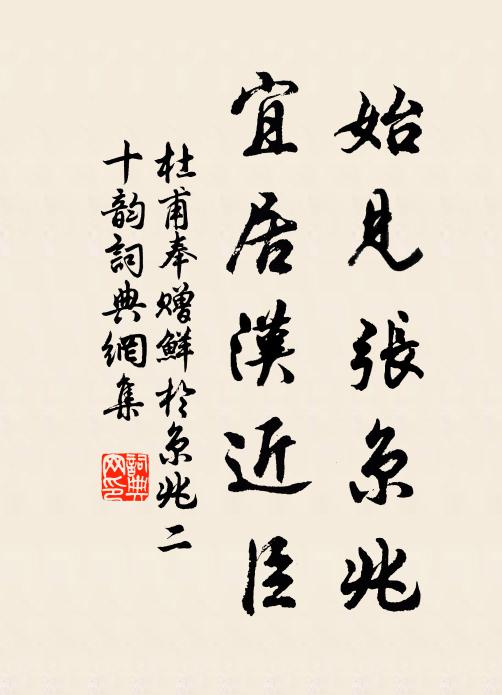 始見張京兆
宜居漢近臣
杜甫奉赠鮮於京兆二
十韵詞典網集
詞典网印